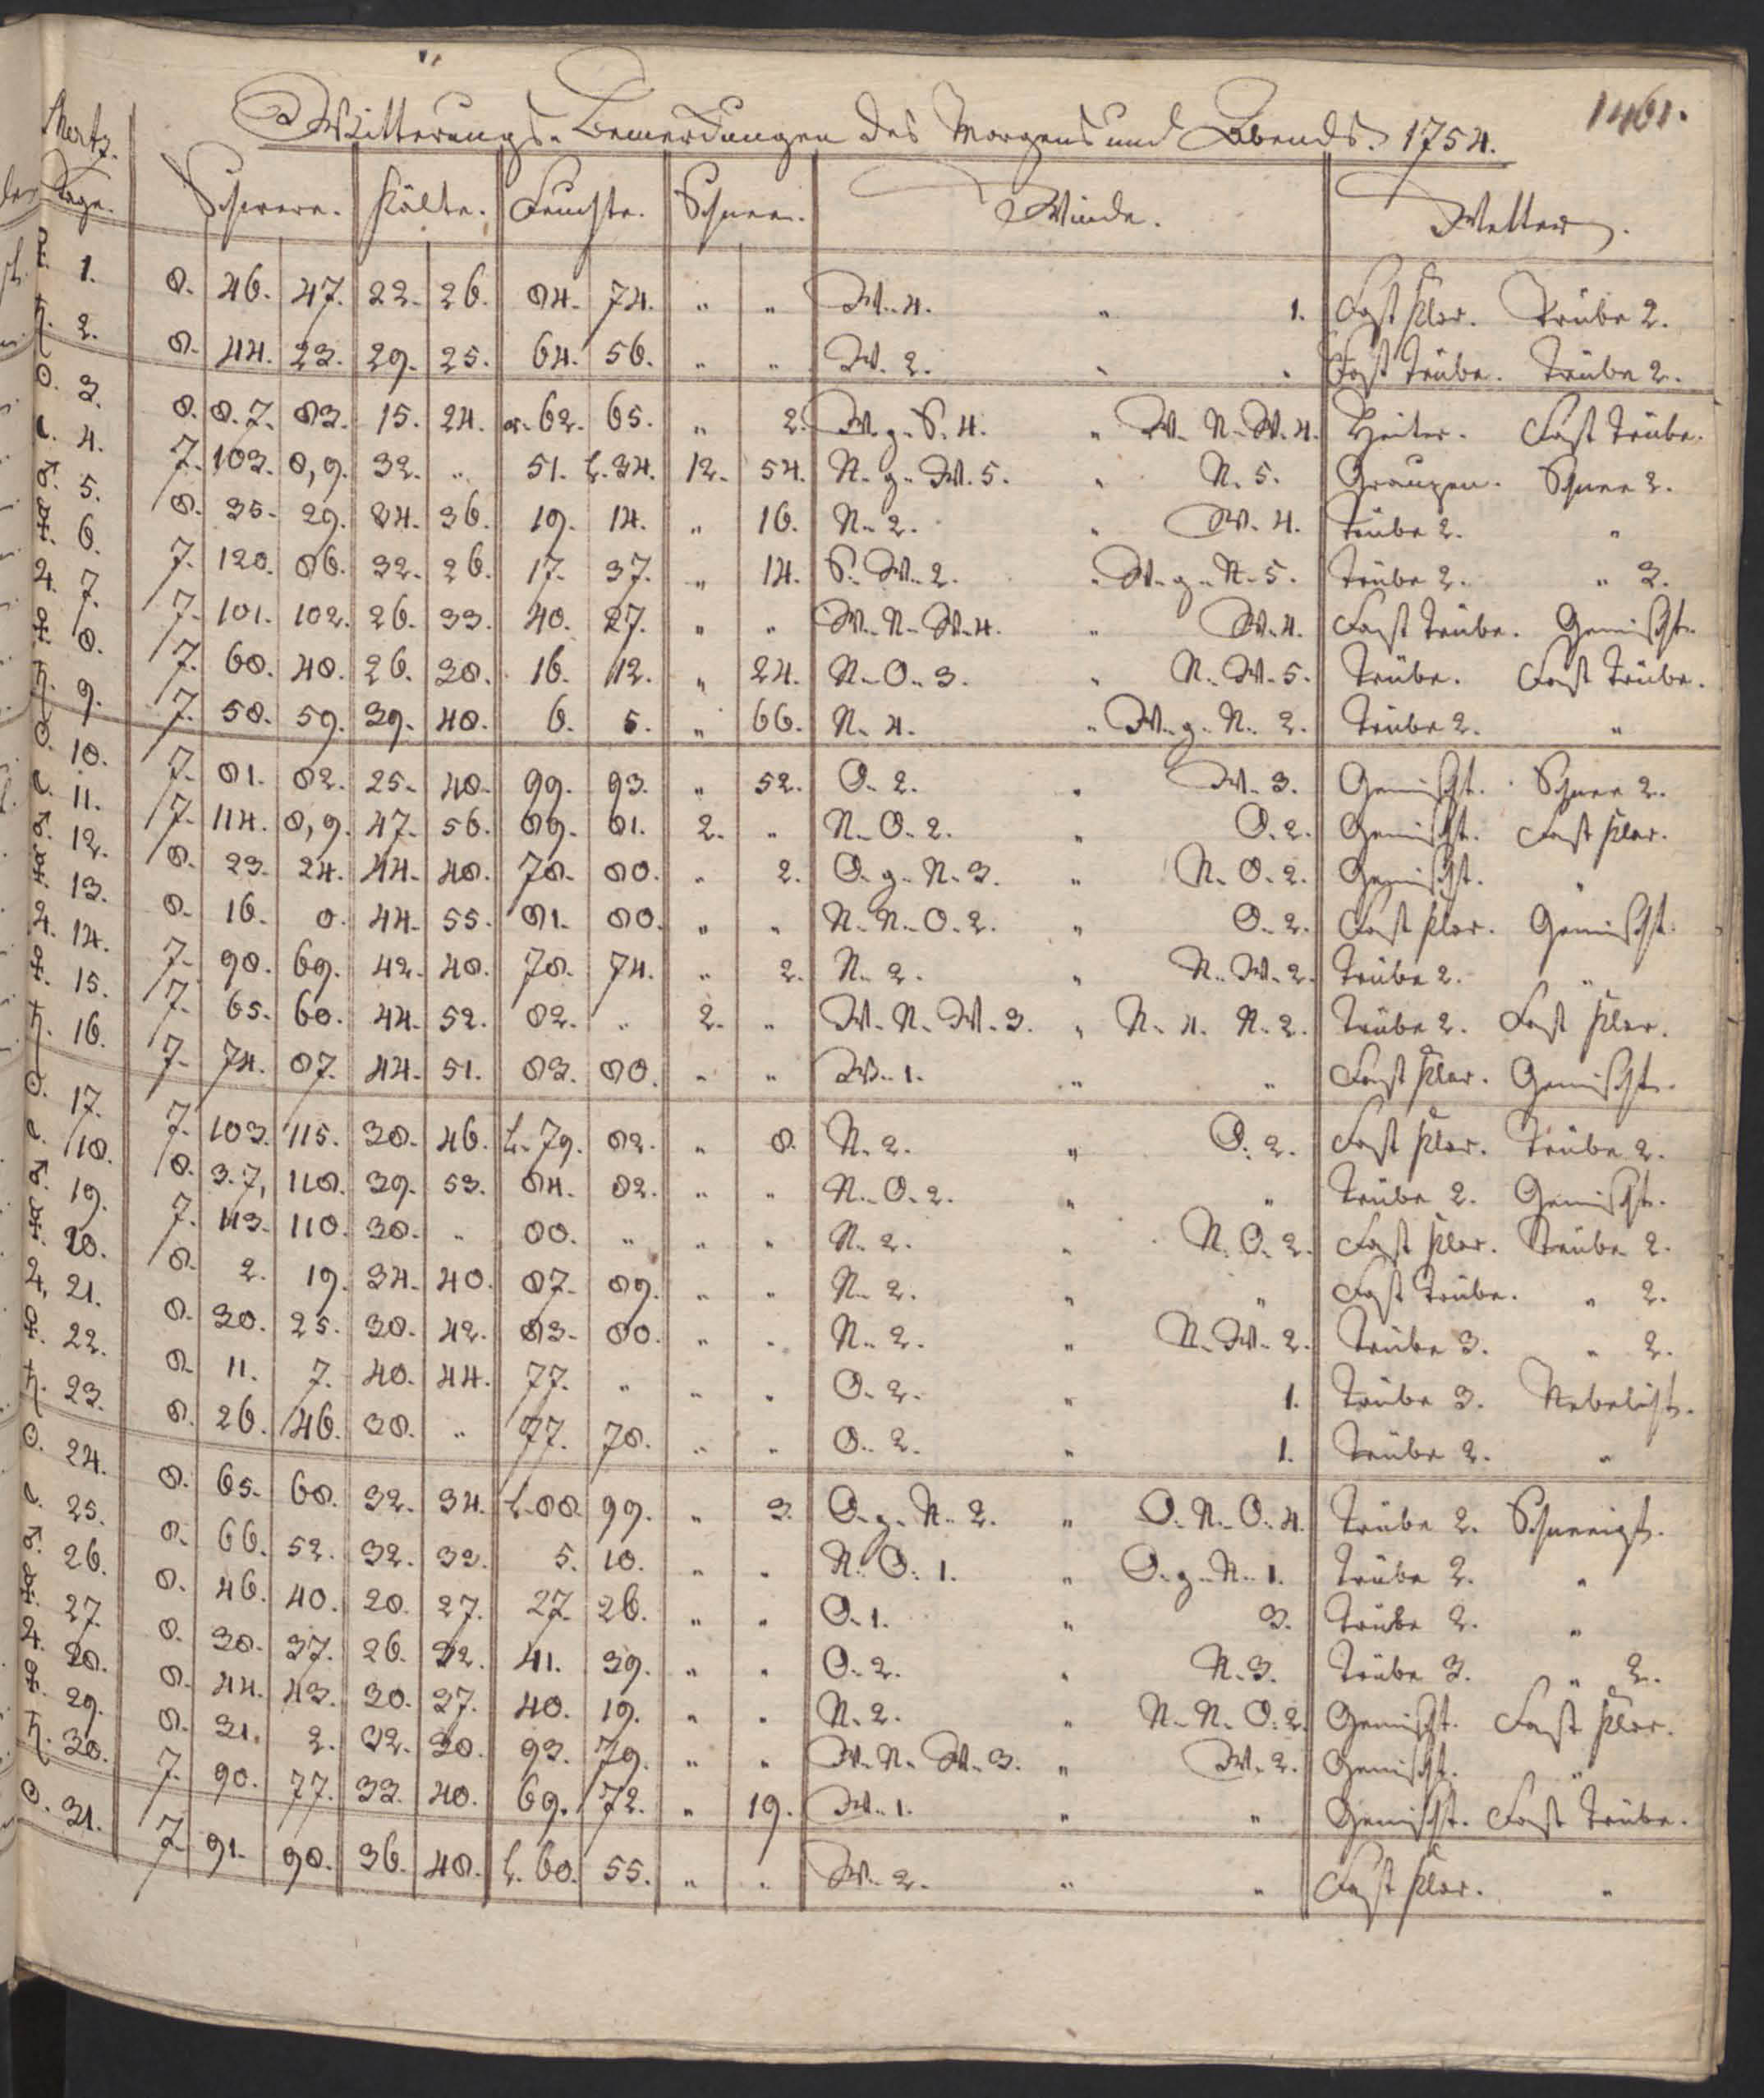 1461.
Witterungs-Bemerckungen des Morgens und Abends. 1754.
Mertz. Tage. Schwere. Kälte. Feuchte. Schnee. Winde. Wetter.
♀. 1. 8. 46. 47. 22. 26. 84. 74. " " W. 4. " 1. Fast klar. Trübe 2.
♄. 2. 8. 44. 23. 29. 25. 64. 56. " " W. 2. " " Fast trübe. Trübe 2.
☉. 3. 8. 8.7. 83. 15. 24. 62. 65. " 2. W. g. S. 4. " W. N. W. 4. Heiter. Fast trübe.
☾. 4. 7. 103. 8,9. 32. " 51. h. 34. 12. 54. N. g. W. 5. " N. 5. Graupen. Schnee 2.
♂. 5. 8. 35. 29. 34. 36. 19. 14. " 16. N. 2. " W. 4. Trübe 2. "
☿. 6. 7. 120. 86. 32. 26. 17. 37. " 14. S. W. 2. " W. g. N. 5. Trübe 2. " 3.
♃. 7. 7. 101. 102. 26. 33. 40. 27. " " W. N. W. 4. " W. 4. Fast trübe. Gemischt.
♀. 8. 7. 68. 48. 26. 38. 16. 12. " 24. N. O. 3. " N. W. 5. Trübe. Fast trübe.
♄. 9. 7. 58. 59. 39. 48. 6. 5. " 66. N. 4. " W. g. N. 2. Trübe 2. "
☉. 10. 7. 81. 82. 25. 48. 99. 93. " 52. O. 2. " W. 3. Gemischt. Schnee 2.
☾. 11. 7. 114. 8,9. 47. 56. 89. 81. 2. " N. O. 2. " O. 2. Gemischt. Fast klar.
♂. 12. 8. 23. 24. 44. 48. 78. 80. " 2. O. g. N. 3. " N. O. 2. Gemischt. "
☿. 13. 8. 16. 0. 44. 55. 81. 80. " " N. N. O. 2. " O. 2. Fast klar. Gemischt.
♃. 14. 7. 98. 69. 42. 48. 78. 74. " 2. N. 2. " N. W. 2. Trübe 2. "
♀. 15. 7. 65. 60. 44. 52. 82. " 2. " W. N. W. 3. " N. 4. N. 2. Trübe 2. Fast klar.
♄. 16. 7. 74. 87. 44. 51. 83. 80. " " W. 1. " " Fast klar. Gemischt.
☉. 17. 7. 103. 115. 38. 46. h. 79. 82. " 8. N. 2. " O. 2. Fast klar. Trübe 2.
☾. 18. 8. 3.7, 118. 39. 53. 84. 82. " " N. O. 2. " " Trübe 2. Gemischt.
♂. 19. 7. 113. 110. 38. " 80. " " " N. 2. " N. O. 2. Fast klar. Trübe 2.
☿. 20. 8. 2. 19. 34. 40. 87. 89. " " N. 2. " " Fast trübe. " 2.
♃. 21. 8. 30. 25. 38. 42. 83. 80. " " N. 2. " N. W. 2. Trübe 3. " 2.
♀. 22. 8. 11. 7. 40. 44. 77. " " " O. 2. " 1. Trübe 3. Nebelicht.
♄. 23. 8. 26. 46. 38. " 77. 78. " " O. 2. " 1. Trübe 2. "
☉. 24. 8. 65. 68. 32. 34. h. 88. 99. " 3. O. g. N. 2. " O. N. O. 4. Trübe 2. Schneeigt.
☾. 25. 8. 66. 52. 32. 33. 5. 10. " " N. O. 1. " O. g. N. 1. Trübe 2. "
♂. 26. 8. 46. 40. 28. 27. 27. 26. " " O. 1. " 3. Trübe 2. "
☿. 27. 8. 38. 37. 26. 32. 41. 39. " " O. 2. " N. 3. Trübe 3. " 2.
♃. 28. 8. 44. 43. 30. 37. 40. 19. " " N. 2. " N. N. O. 2. Gemischt. Fast klar.
♀. 29. 8. 31. 2. 32. 38. 93. 79. " " W. N. W. 3. " W. 2. Gemischt. "
♄. 30. 7. 90. 77. 33. 40. 69. 72. " 19. W. 1. " " Gemischt. Fast trübe.
☉. 31. 7. 91. 98. 36. 48. h. 60. 55. " " W. 2. " " Fast klar. "